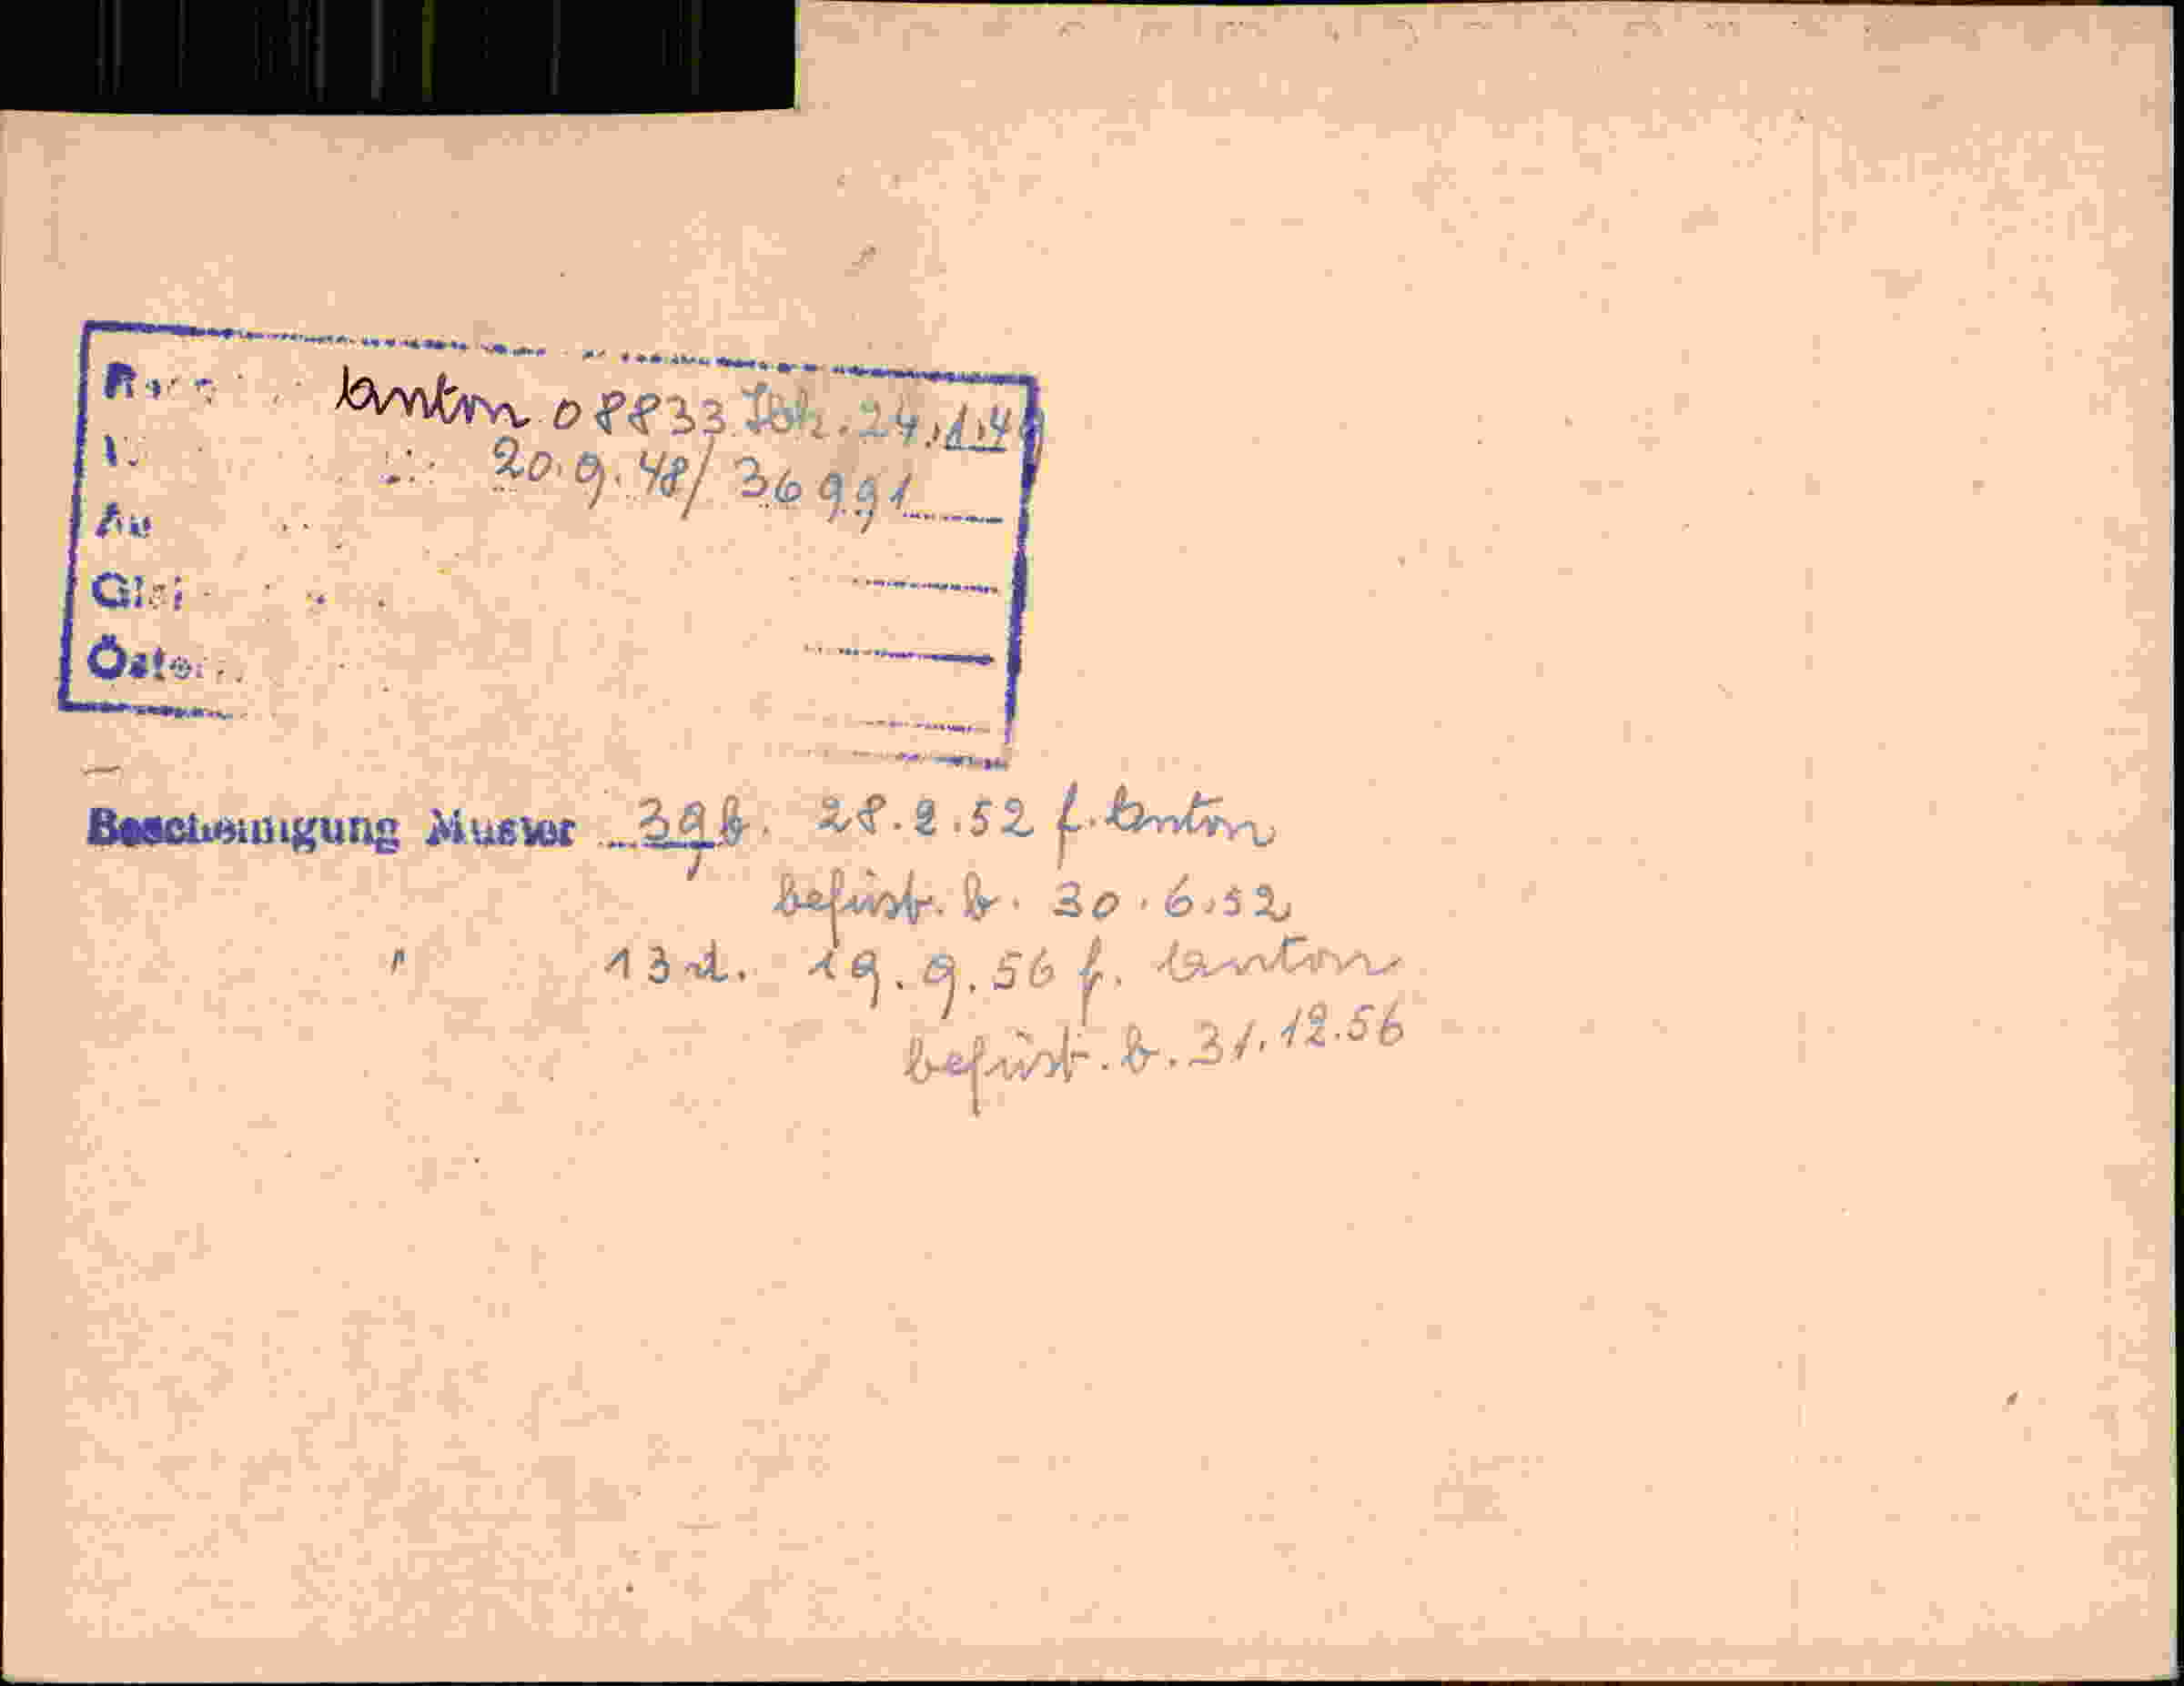 Anton 08833 Ibk. 24.1.49
20.9.48/36991
Bescheinigung Muster 39b. 28.2.52 f. Anton
befrist. b. 30.6.52
" 13d. 19.9.56 f. Anton
befrist. b. 31.12.56